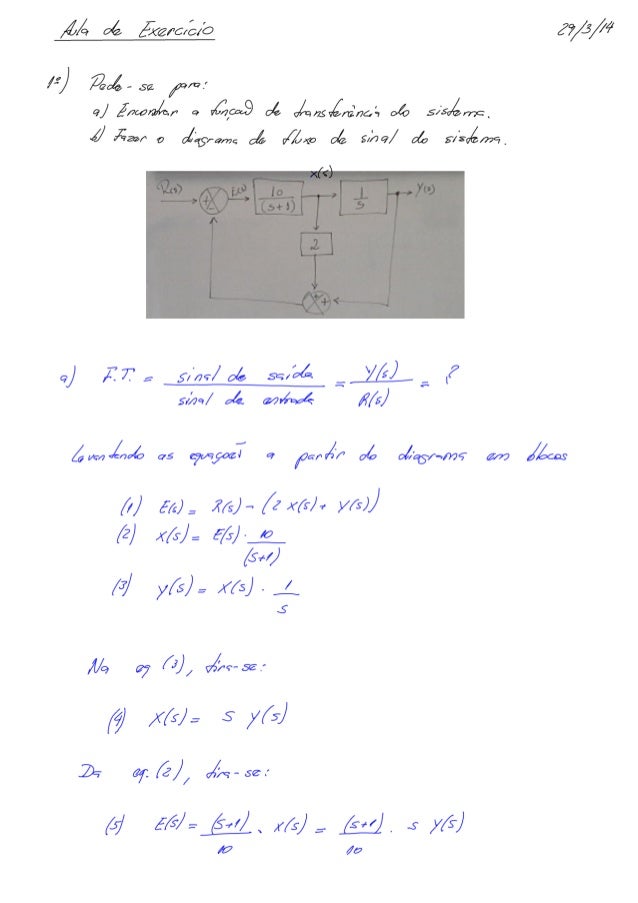 Aula de Exercício 29/3/14
1º) Pede-se para:
a) Encontrar a função de transferência do sistema.
b) Fazer o diagrama de fluxo de sinal do sistema.
X(s)
R(s) + - E(s) 10/(s+1) 1/s Y(s)
2
+ +
a) F.T. = sinal de saída / sinal de entrada = Y(s) / R(s) = ?
Levantando as equações a partir do diagrama em blocos
(1) E(s) = R(s) - (2 X(s) + Y(s))
(2) X(s) = E(s) . 10 / (s+1)
(3) Y(s) = X(s) . 1 / s
Na eq (3), tira-se:
(4) X(s) = s Y(s)
Da eq. (2), tira-se:
(5) E(s) = (s+1) / 10 . X(s) = (s+1) / 10 . s Y(s)